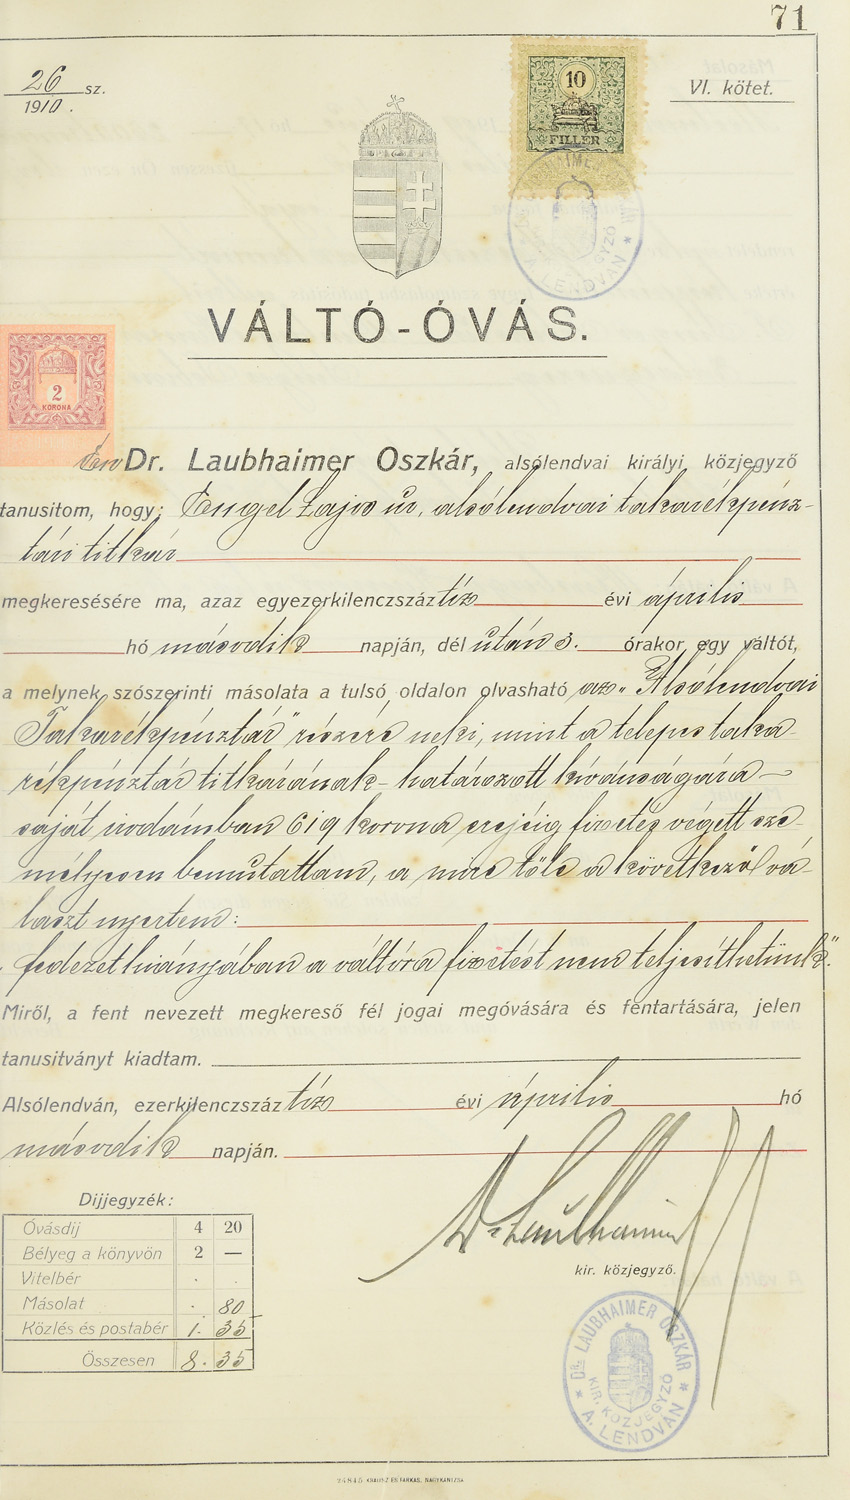 71
26 sz.
1910.
VI. kötet.
10
FILLÉR
KÖZJEGYZŐ
A. LENDVÁN
VÁLTÓ-ÓVÁS.
2
KORONA
Én Dr. Laubhaimer Oszkár, alsólendvai királyi közjegyző
tanusitom, hogy: Engel Lajos úr, alsólendvai takarékpénz-
tári titkár
megkeresésére ma, azaz egyezerkilenczszáz tiz évi április
hó második napján, dél után 3. órakor egy váltót,
a melynek szószerinti másolata a tulsó oldalon olvasható az „Alsólendvai
Takarékpénztár" részére neki, mint a telepes taka-
rékpénztár titkárának - határozott kivánságára -
saját irodámban 619 korona erejéig fizetés végett sze-
mélyesen bemutattam, a mire tőle a következő vá-
laszt nyertem:
fedezet hiányában a váltóra fizetést nem teljesíthetünk".
Miről, a fent nevezett megkereső fél jogai megóvására és fentartására, jelen
tanusitványt kiadtam.
Alsólendván, ezerkilenczszáz tiz évi április hó
második napján.
Dr Laubhaimer
kir. közjegyző.
Dijjegyzék:
Óvásdij 4 20
Bélyeg a könyvön 2 —
Vitelbér . .
Másolat . 80
Közlés és postabér 1. 35
Összesen 8. 35
DR. LAUBHAIMER OSZKÁR
KIR. KÖZJEGYZŐ
A. LENDVÁN
24845 KRAUSZ ÉS FARKAS, NAGYKANIZSA